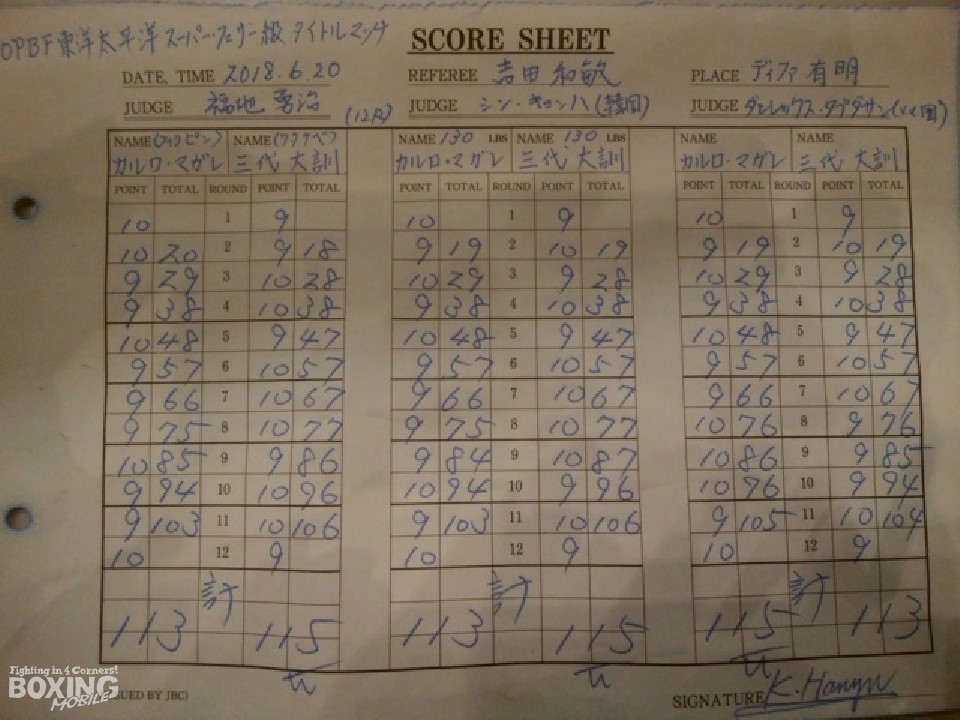 OPBF東洋太平洋スーパーフェザー級タイトルマッチ
SCORE SHEET
DATE, TIME 2018.6.20 REFEREE 吉田和敏 PLACE ディファ有明
JUDGE 福地勇治 (12R) JUDGE シン・キョンハ(韓国) JUDGE
NAME (フィリピン) NAME (ワタナベ) NAME 130 LBS NAME 130 LBS NAME NAME
カルロ・マガレ 三代大訓 カルロ・マガレ 三代大訓 カルロ・マガレ 三代大訓
POINT TOTAL ROUND POINT TOTAL POINT TOTAL ROUND POINT TOTAL POINT TOTAL ROUND POINT TOTAL
10 1 9 10 1 9 10 1 9
10 20 2 9 18 9 19 2 10 19 9 19 2 10 19
9 29 3 10 28 10 29 3 9 28 10 29 3 9 28
9 38 4 10 38 9 38 4 10 38 9 38 4 10 38
10 48 5 9 47 10 48 5 9 47 10 48 5 9 47
9 57 6 10 57 9 57 6 10 57 9 57 6 10 57
9 66 7 10 67 9 66 7 10 67 9 66 7 10 67
9 75 8 10 77 9 75 8 10 77 10 76 8 9 76
10 85 9 9 86 9 84 9 10 87 10 86 9 9 85
9 94 10 10 96 10 94 10 9 96 10 76 10 9 94
9 103 11 10 106 9 103 11 10 106 9 105 11 10 104
10 12 9 10 12 9 10 12 9
計 計 計
113 115 113 115 115 113
Fighting in 4 Corners!
BOXING
MOBILE
UED BY JBC)
SIGNATURE K. Hanyu